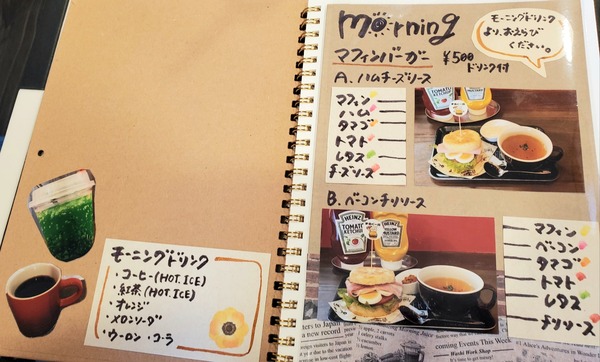 モーニングドリンク
・コーヒー(HOT.ICE)
・紅茶(HOT.ICE)
・オレンジ
・メロンソーダ
・ウーロン・コーラ
morning
モーニングドリンク
より、おえらび
ください。
マフィンバーガー ¥500
ドリンク付
A. ハムチーズソース
マフィン
ハム
タマゴ
トマト
レタス
チーズソース
B. ベーコンチリソース
HEINZ
TOMATO
KETCHUP
HEINZ
YELLOW
MUSTARD
マフィン
ベーコン
タマゴ
トマト
レタス
チリソース
a new record
coming Events This Week